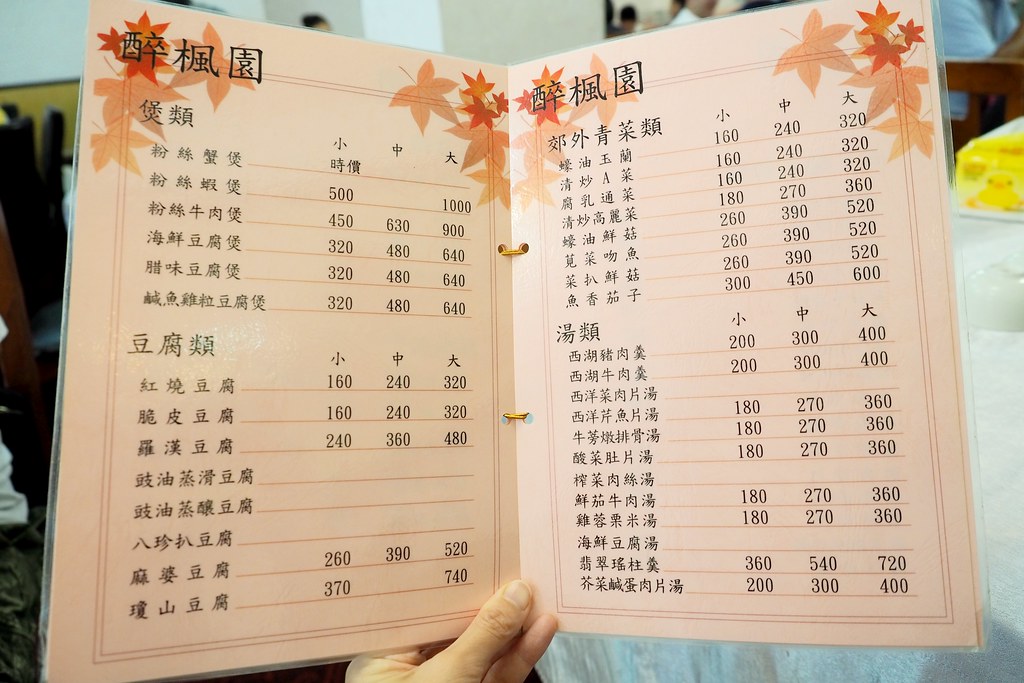 醉楓園
煲類
小 中 大
粉絲蟹煲 時價
粉絲蝦煲 500 1000
粉絲牛肉煲 450 630 900
海鮮豆腐煲 320 480 640
腊味豆腐煲 320 480 640
鹹魚雞粒豆腐煲 320 480 640
豆腐類
小 中 大
紅燒豆腐 160 240 320
脆皮豆腐 160 240 320
羅漢豆腐 240 360 480
豉油蒸滑豆腐
豉油蒸釀豆腐
八珍扒豆腐
麻婆豆腐 260 390 520
瓊山豆腐 370 740
醉楓園
郊外青菜類
小 中 大
蠔油玉蘭 160 240 320
清炒A菜 160 240 320
腐乳通菜 160 240 320
清炒高麗菜 180 270 360
蠔油鮮菇 260 390 520
莧菜吻魚 260 390 520
菜扒鮮菇 260 390 520
魚香茄子 300 450 600
湯類
小 中 大
西湖豬肉羹 200 300 400
西湖牛肉羹 200 300 400
西洋菜肉片湯
西洋芹魚片湯 180 270 360
牛蒡燉排骨湯 180 270 360
酸菜肚片湯 180 270 360
榨菜肉絲湯
鮮茄牛肉湯 180 270 360
雞蓉粟米湯 180 270 360
海鮮豆腐湯
翡翠瑤柱羹 360 540 720
芥菜鹹蛋肉片湯 200 300 400